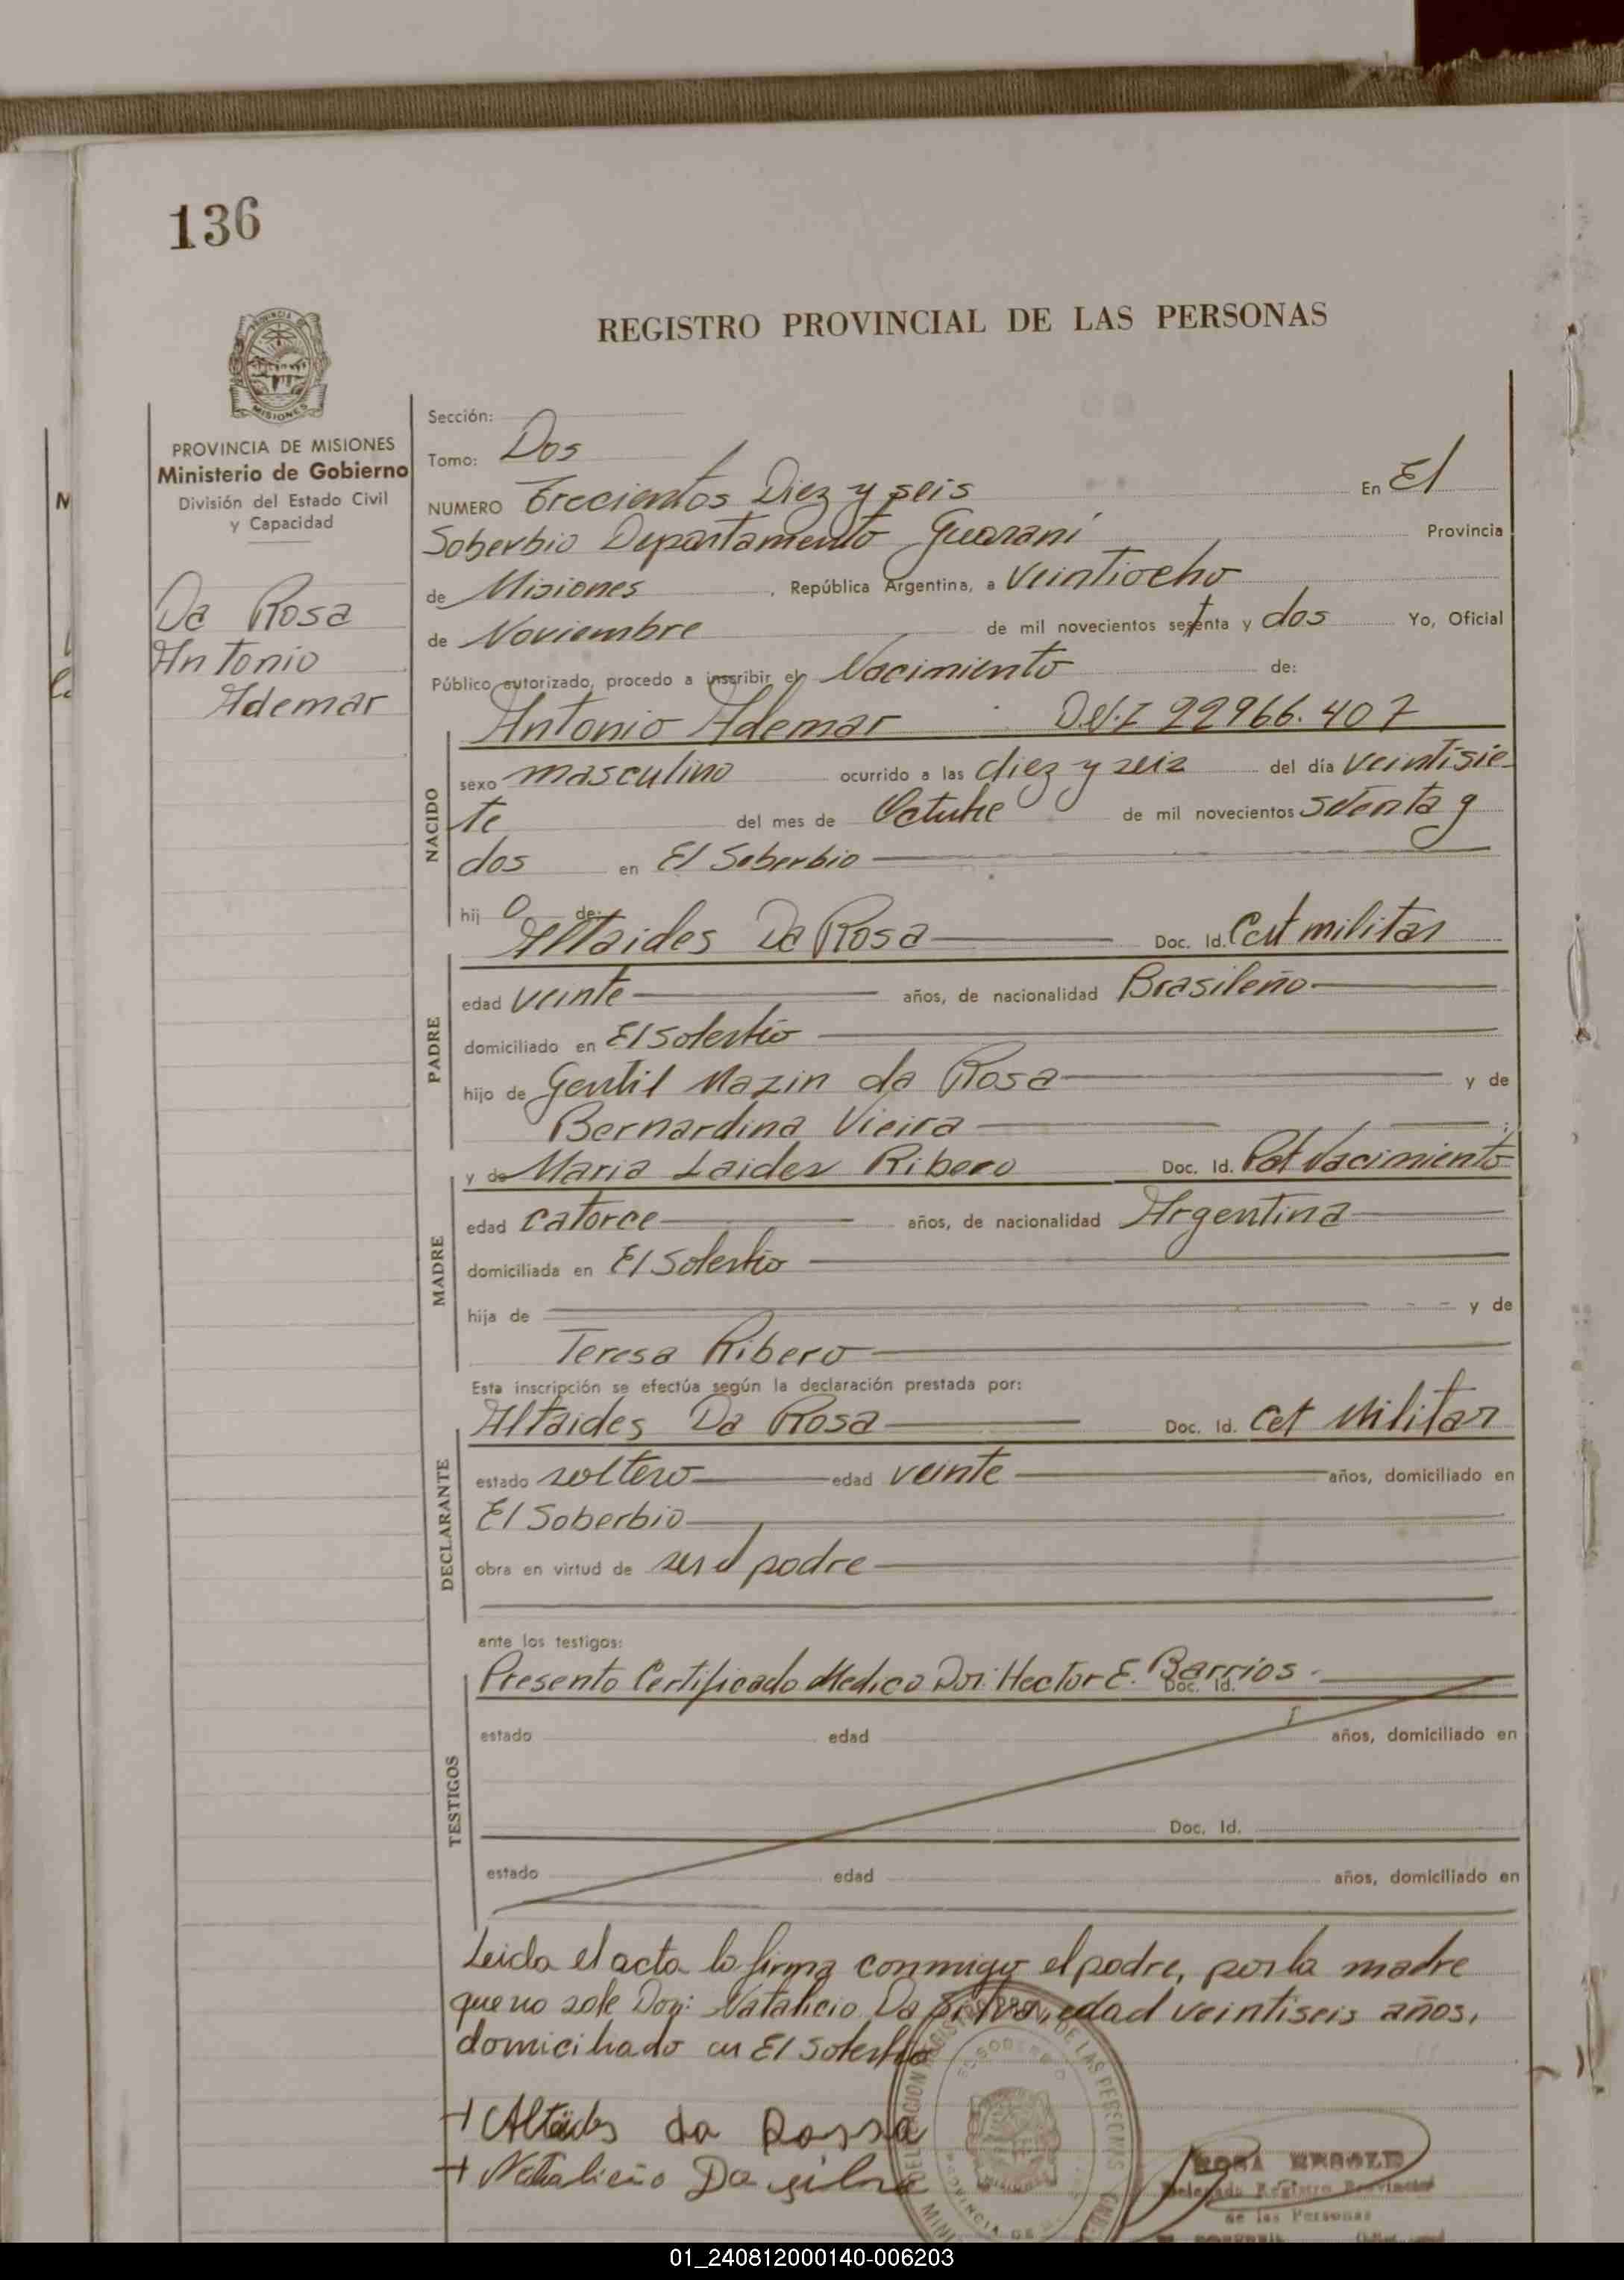 136
PROVINCIA DE MISIONES
Ministerio de Gobierno
División del Estado Civil
y Capacidad
Da Rosa
Antonio
Ademar
REGISTRO PROVINCIAL DE LAS PERSONAS
Sección:
Tomo: Dos
NUMERO Trecientos Diez y seis En El
Soberbio Departamento Guaraní Provincia
de Misiones, República Argentina, a Veintiocho
de Noviembre de mil novecientos setenta y dos Yo, Oficial
Público autorizado, procedo a inscribir el Nacimiento de:
Antonio Ademar D.N.I 22966.407
NACIDO
sexo masculino ocurrido a las diez y seis del día Veintisie
te del mes de Octubre de mil novecientos Setenta y
dos en El Soberbio
hij o de:
PADRE
Altaides Da Rosa Doc. Id. Cert militar
edad veinte años, de nacionalidad Brasileño
domiciliado en El Soberbio
hijo de Gentil Mazin da Rosa y de
Bernardina Vieira
MADRE
y de Maria Laides Ribero Doc. Id. Nacimiento
edad catorce años, de nacionalidad Argentina
domiciliada en El Soberbio
hija de y de
Teresa Ribero
Esta inscripción se efectúa según la declaración prestada por:
DECLARANTE
Altaides Da Rosa Doc. Id. Cet Militar
estado soltero edad veinte años, domiciliado en
El Soberbio
obra en virtud de ser el padre
ante los testigos:
TESTIGOS
Presento Certificado Medico Dor: Hector E. Barrios. Doc. Id.
estado edad años, domiciliado en
Doc. Id.
estado edad años, domiciliado en
Leida el acta la firma conmigo el padre, por la madre
que no sabe Don: Natalicio Da Silva, edad veintiseis años,
domiciliado en El Soberbio
+ Altaides da Rossa
+ Natalicio Da silva
ROSA
Delegada Registro Provincial
de las Personas
01_240812000140-006203